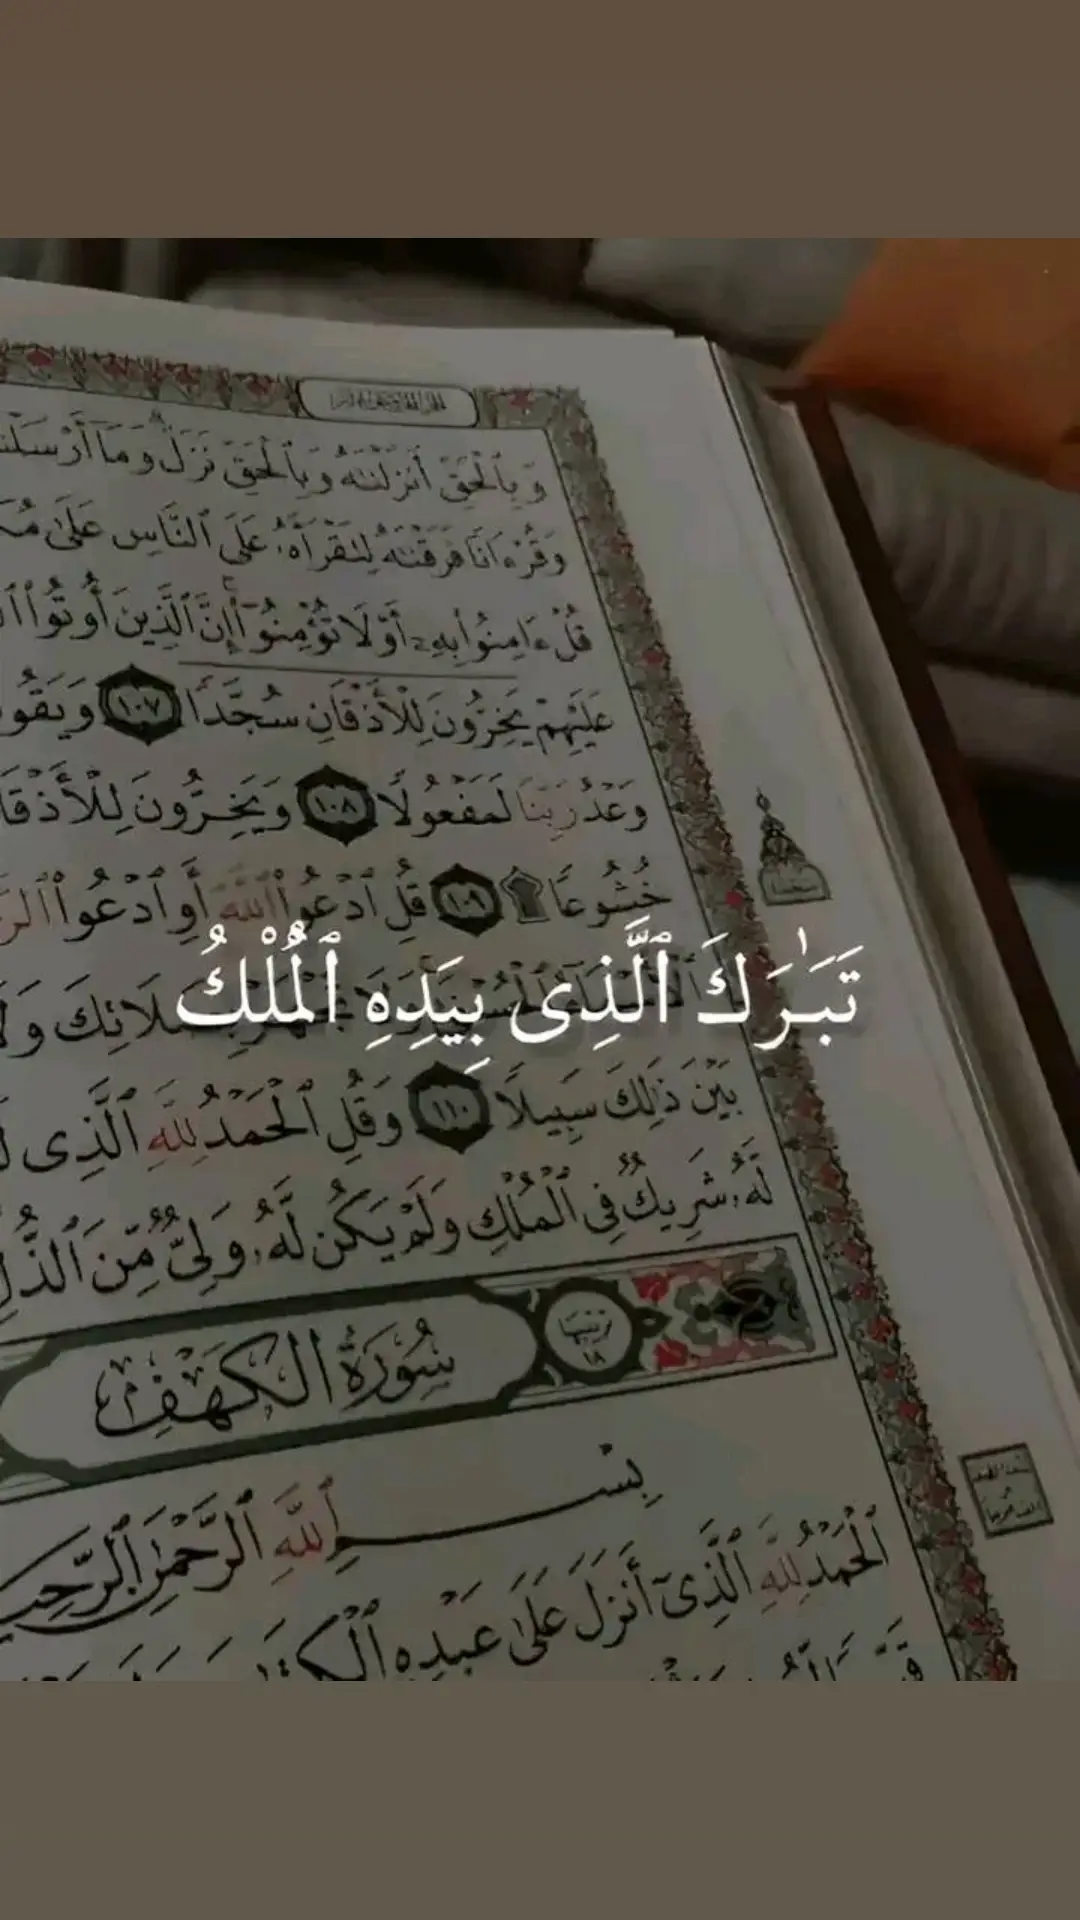 وَبِٱلْحَقِّ أَنزَلْنَٰهُ وَبِٱلْحَقِّ نَزَلَ وَمَآ أَرْسَلْنَ
وَقُرْءَانًا فَرَقْنَٰهُ لِتَقْرَأَهُۥ عَلَى ٱلنَّاسِ عَلَىٰ
قُلْ ءَامِنُوا۟ بِهِۦٓ أَوْ لَا تُؤْمِنُوٓا۟ إِنَّ ٱلَّذِينَ أُوتُوا۟
عَلَيْهِمْ يَخِرُّونَ لِلْأَذْقَانِ سُجَّدًا ١٠٧ وَيَقُو
وَعْدُ رَبِّنَا لَمَفْعُولًا ١٠٨ وَيَخِرُّونَ لِلْأَذْقَا
خُشُوعًا ۩ ١٠٩ قُلِ ٱدْعُوا۟ ٱللَّهَ أَوِ ٱدْعُوا۟
تَبَٰرَكَ ٱلَّذِى بِيَدِهِ ٱلْمُلْكُ
بَيْنَ ذَٰلِكَ سَبِيلًا ١١٠ وَقُلِ ٱلْحَمْدُ لِلَّهِ ٱلَّذِى
لَّهُۥ شَرِيكٌ فِى ٱلْمُلْكِ وَلَمْ يَكُن لَّهُۥ وَلِىٌّ مِّنَ ٱلذُّلِّ
سُورَةُ الكَهْفِ
ترتيبها ١٨
بِسْمِ ٱللَّهِ ٱلرَّحْمَٰنِ ٱلرَّحِي
ٱلْحَمْدُ لِلَّهِ ٱلَّذِىٓ أَنزَلَ عَلَىٰ عَبْدِهِ ٱلْكِ